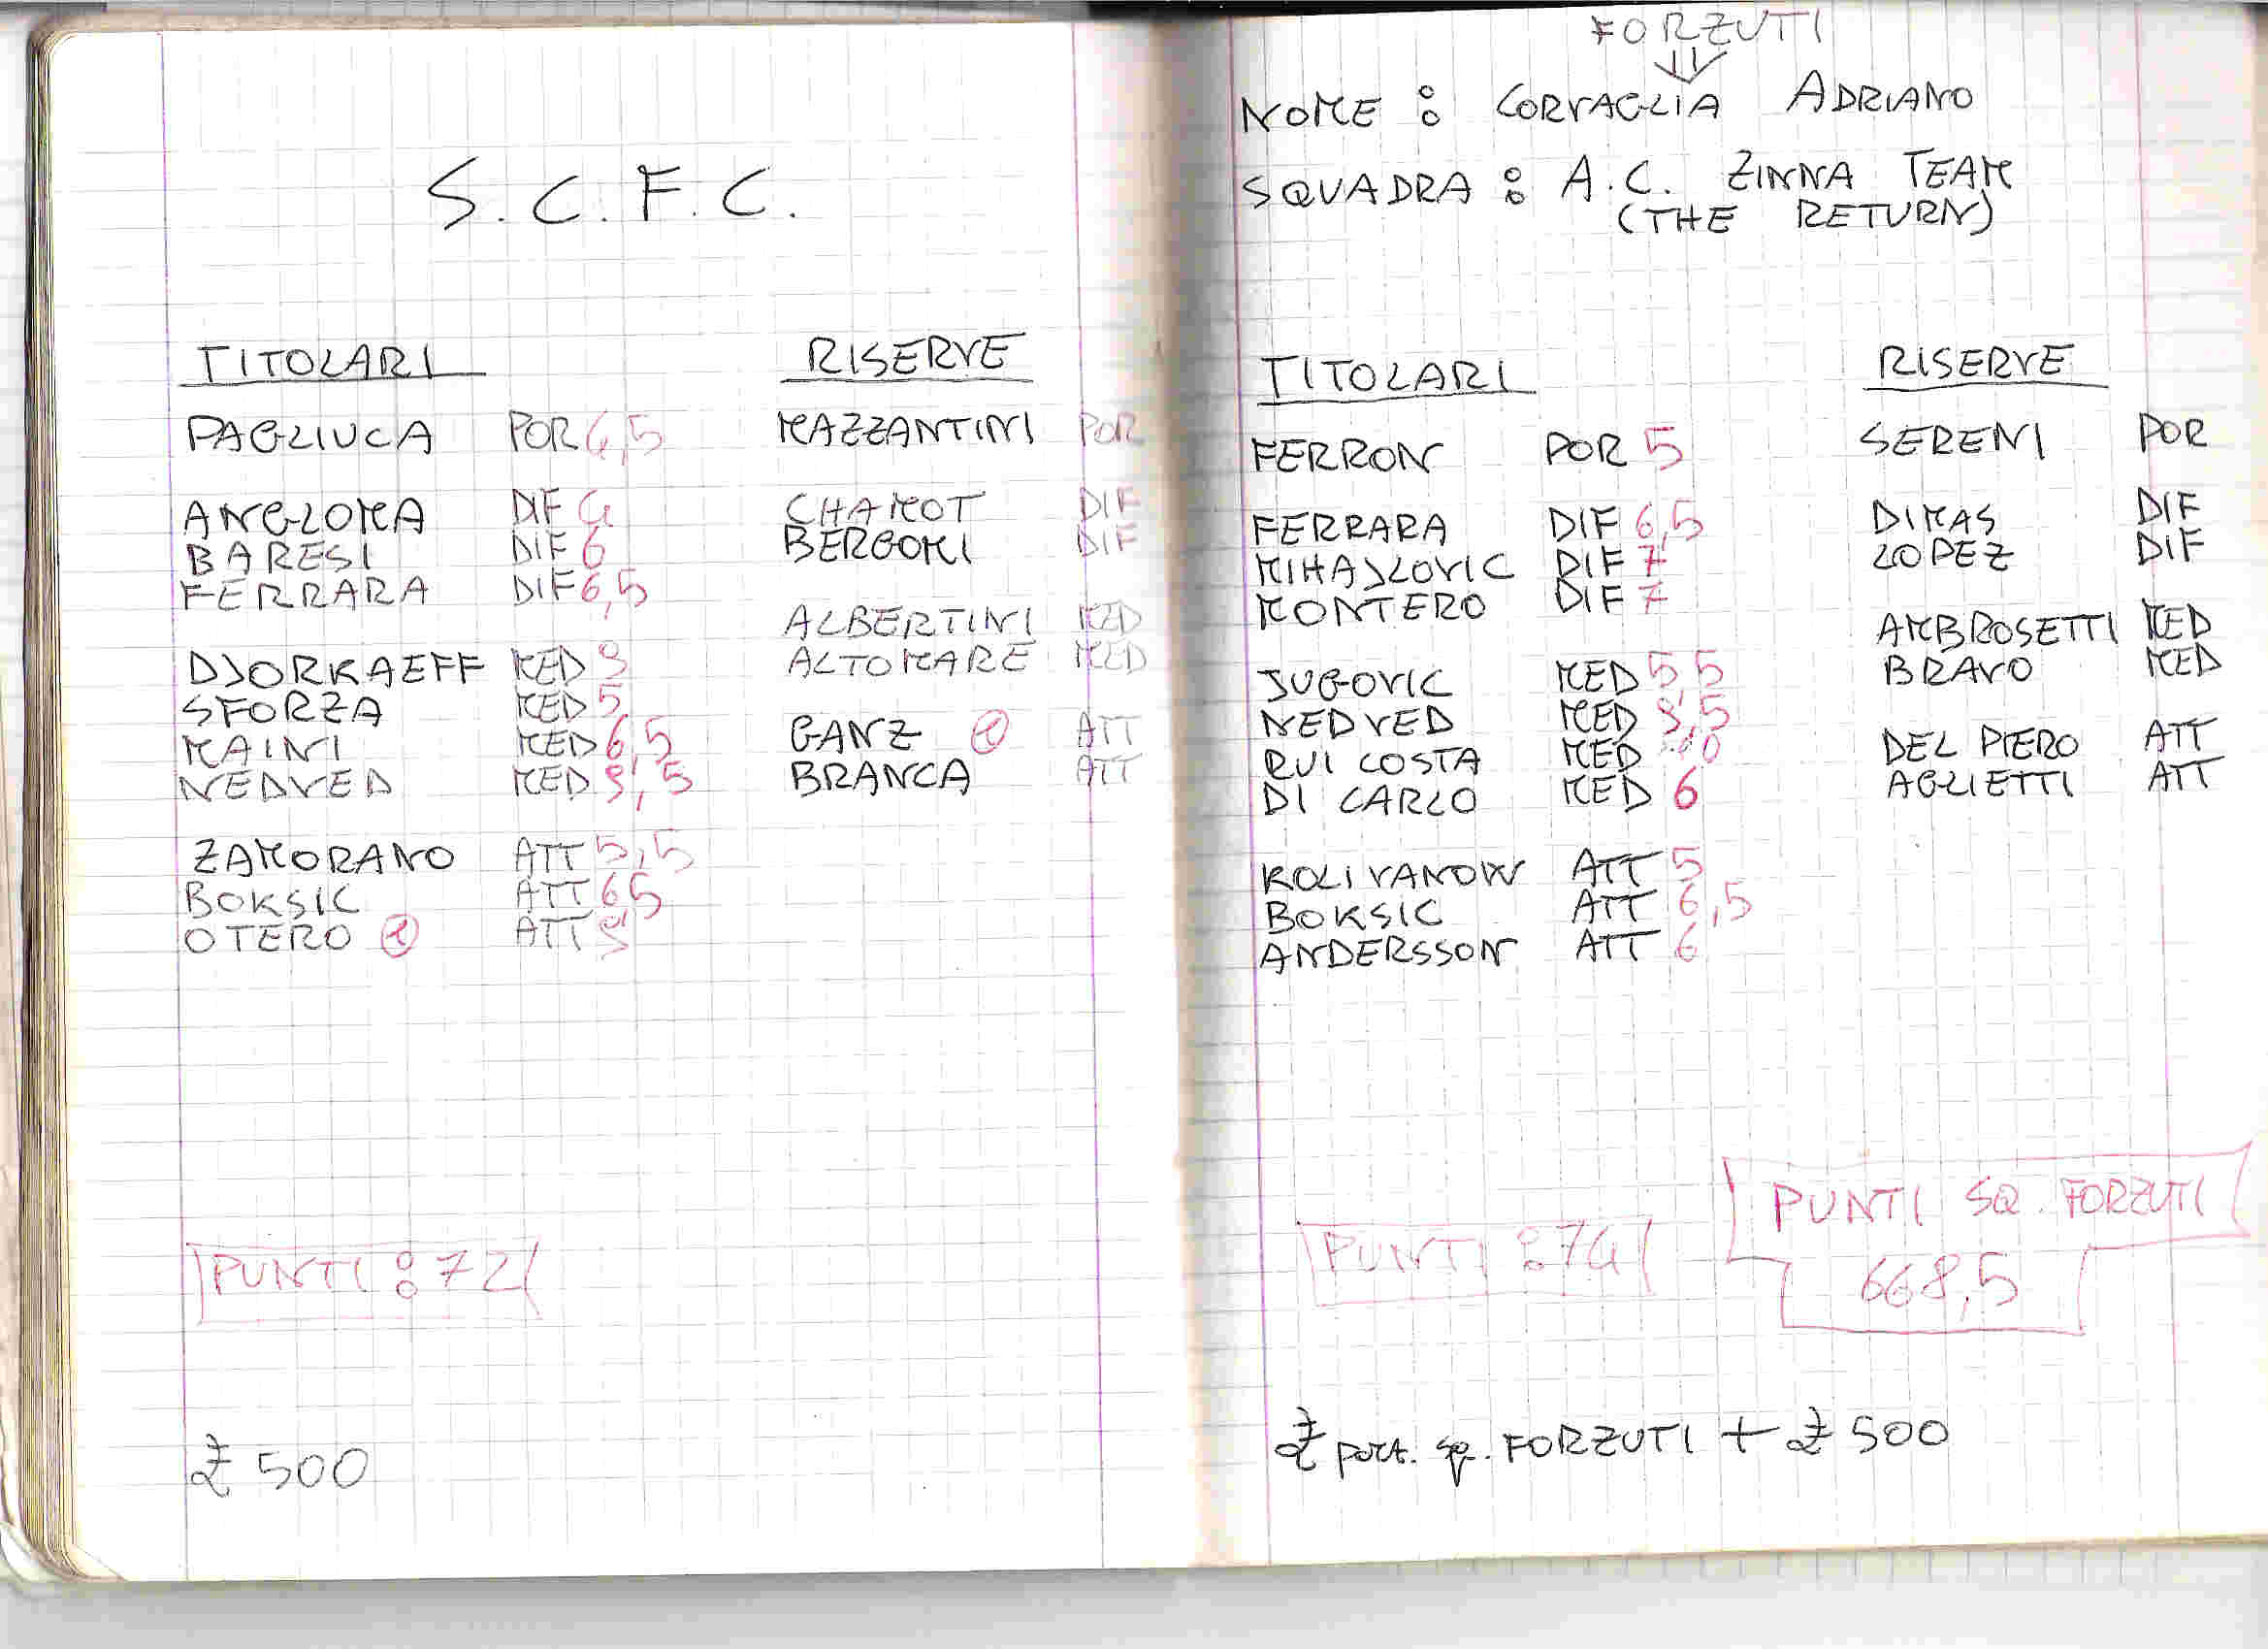 S.C.F.C.
TITOLARI RISERVE
PAGLIUCA POR 4,5 MAZZANTINI POR
ANGLOMA DIF 4 CHAMOT DIF
BARESI DIF 6 BERGOMI DIF
FERRARA DIF 6,5
ALBERTINI MED
DJORKAEFF MED 9 ALTOMARE MED
SFORZA MED 5
MAINI MED 6,5 GANZ ATT
NEDVED MED 9,5 BRANCA ATT
ZAMORANO ATT 5,5
BOKSIC ATT 6,5
OTERO ATT 9
PUNTI : 72
£ 500
FORZUTI
NOME : CORVAGLIA ADRIANO
SQUADRA : A.C. ZINNA TEAM
(THE RETURN)
TITOLARI RISERVE
FERRON POR 5 SERENI POR
FERRARA DIF 6,5 DIMAS DIF
MIHAJLOVIC DIF 7 LOPEZ DIF
MONTERO DIF 7
AMBROSETTI MED
JUGOVIC MED 5,5 BRAVO MED
NEDVED MED 9,5
RUI COSTA MED 10 DEL PIERO ATT
DI CARLO MED 6 AGLIETTI ATT
KOLIVANOW ATT 5
BOKSIC ATT 6,5
ANDERSSON ATT 6
PUNTI SQ. FORZUTI
PUNTI : 74
668,5
£ part. sq. FORZUTI + £ 500